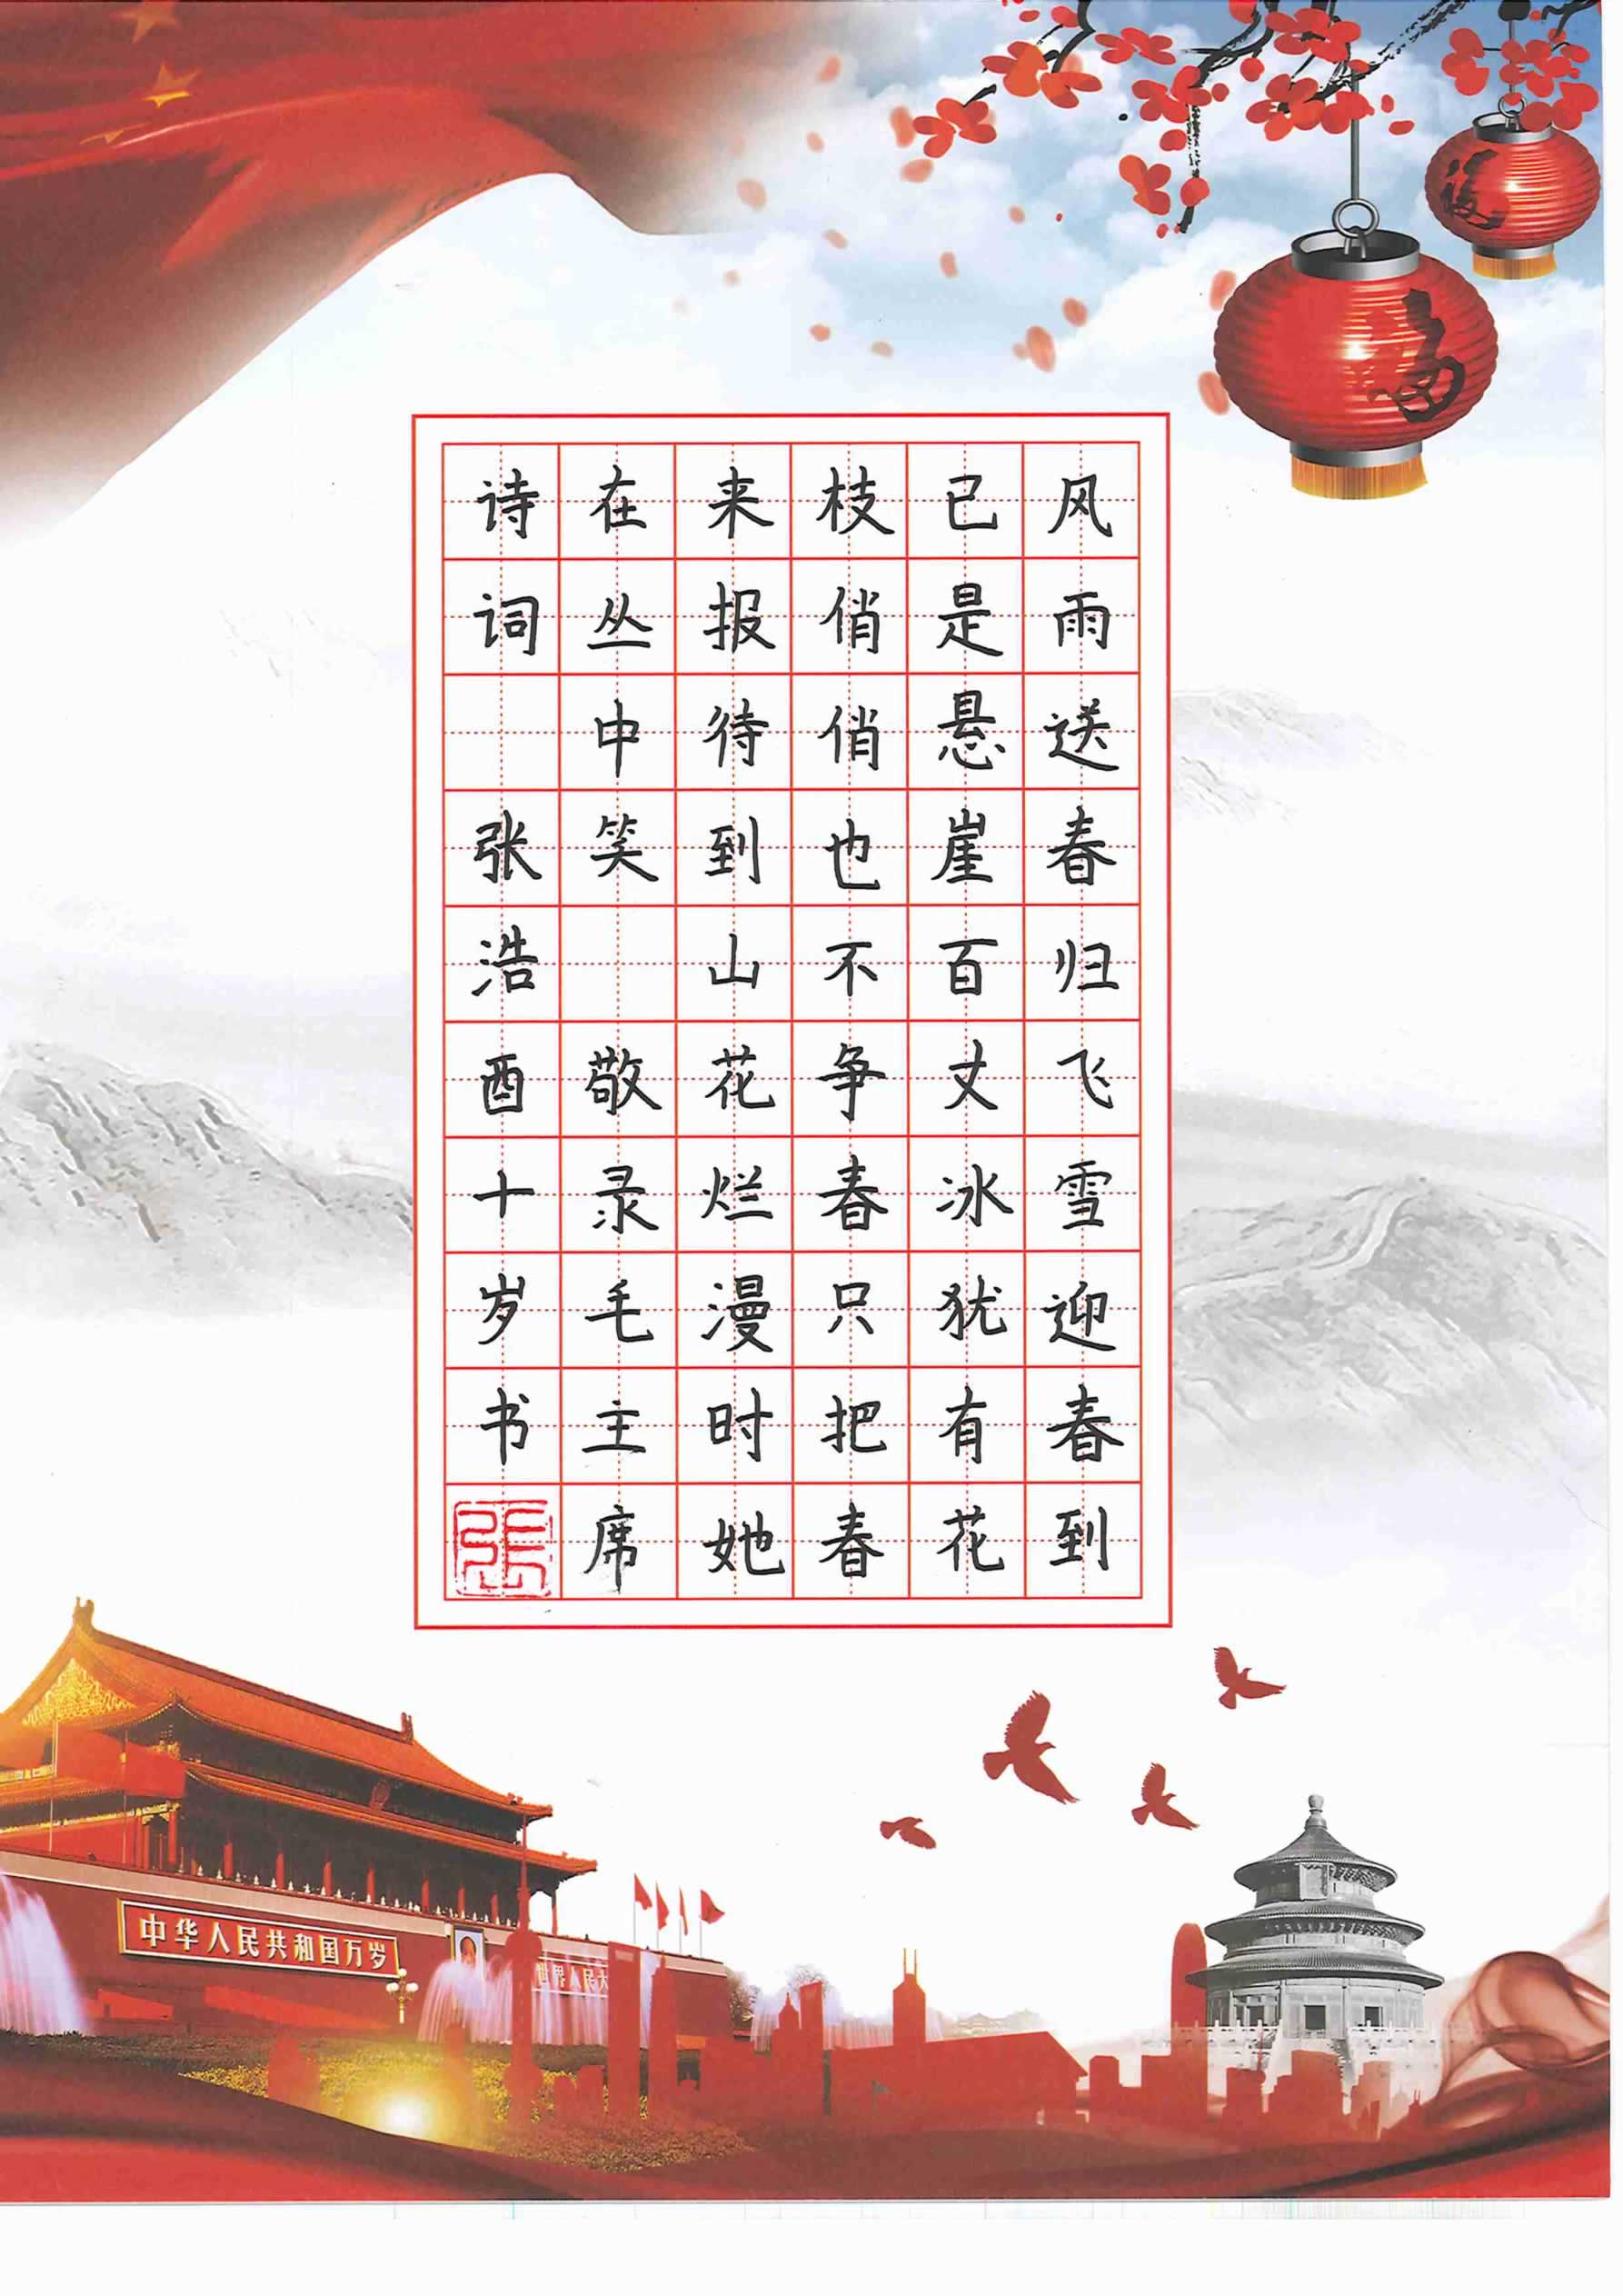 风雨送春归飞雪迎春到
已是悬崖百丈冰犹有花
枝俏俏也不争春只把春
来报待到山花烂漫时她
在丛中笑 敬录毛主席
诗词 张浩酉十岁书
張
中华人民共和国万岁
世界人民大
福
福